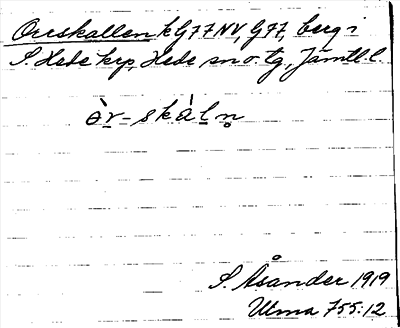 Orrskallen, k G77 NV, G77, berg i
S. Hede krp, Hede sn o. tg, Jämtl. l.
òr-skàln̥
S. Åsander 1919
Utma 755:12